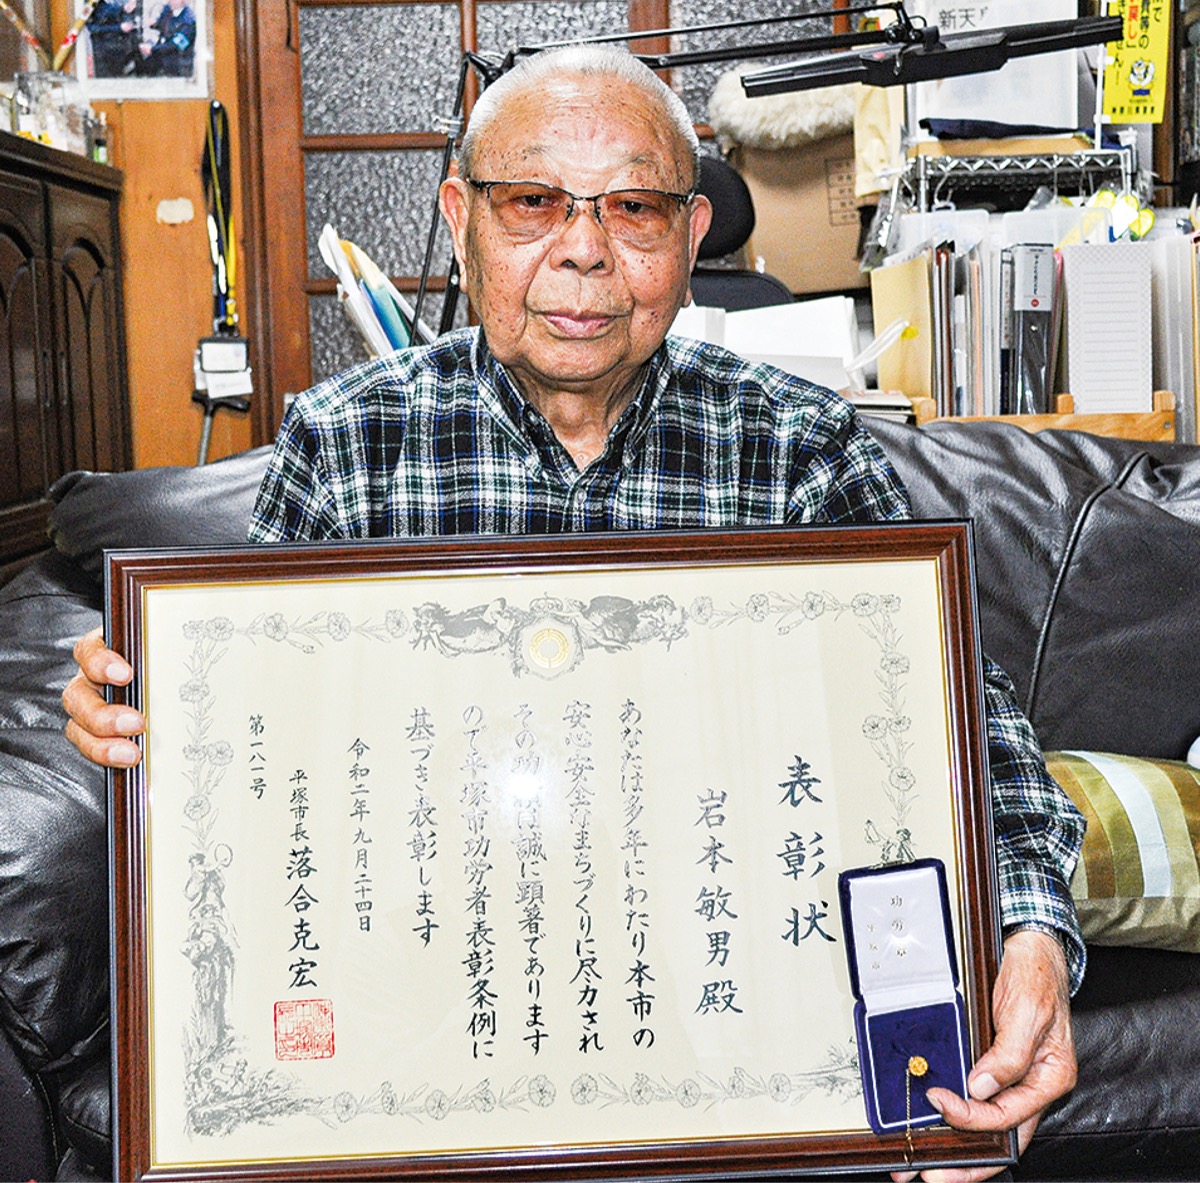 表彰状
岩本敏男殿
あなたは多年にわたり本市の
安心安全なまちづくりに尽力され
その功績は誠に顕著であります
ので平塚市功労者表彰条例に
基づき表彰します
令和二年九月二十四日
平塚市長 落合克宏
第一八一号
功労章
平塚市
新天